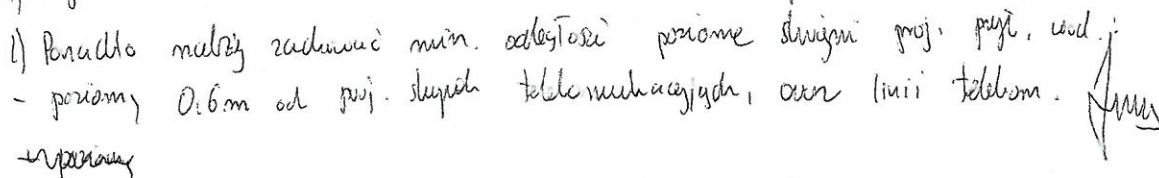 1) Ponadto należy zachować min. odległości poziome skrajni proj. przył. wod.:
- poziomą 0.6m od proj. słupów telekomunikacyjnych, oraz linii telekom.